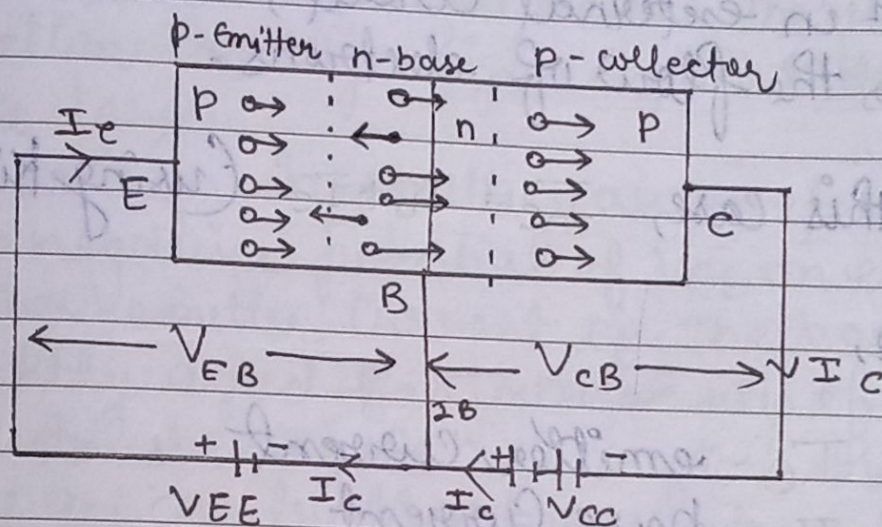 p-Emitter n-base P-collector
P n P
Ie
E C
B
VEB VCB IC
IB
+ - + -
VEE Ic Ic VCC